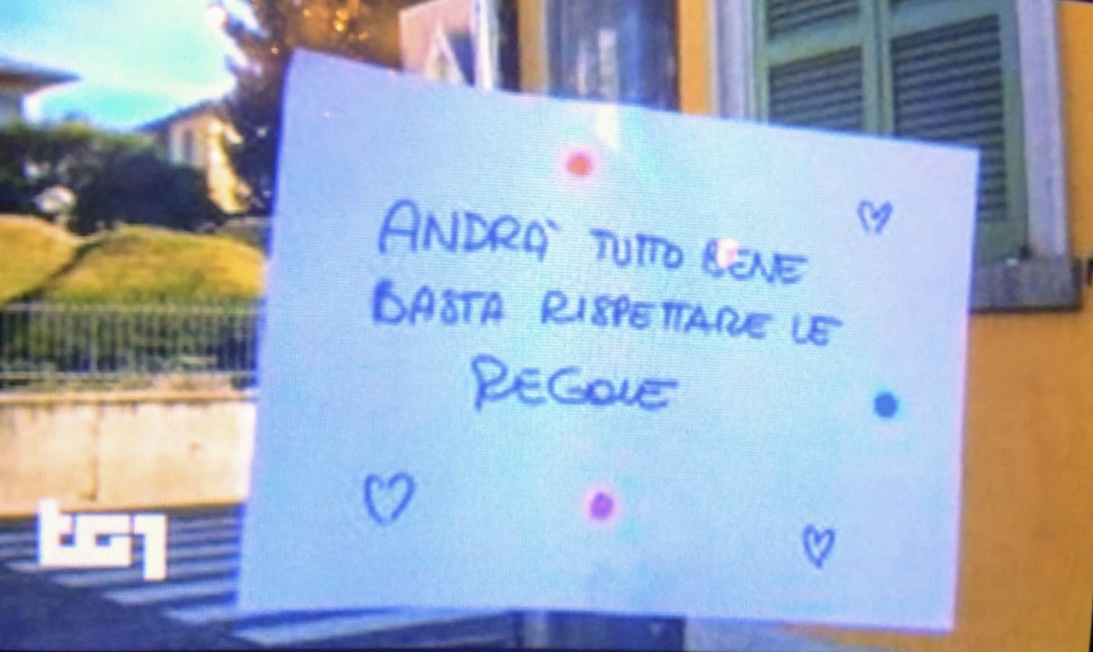 ANDRA' TUTTO BENE
BASTA RISPETTARE LE
REGOLE
tg1